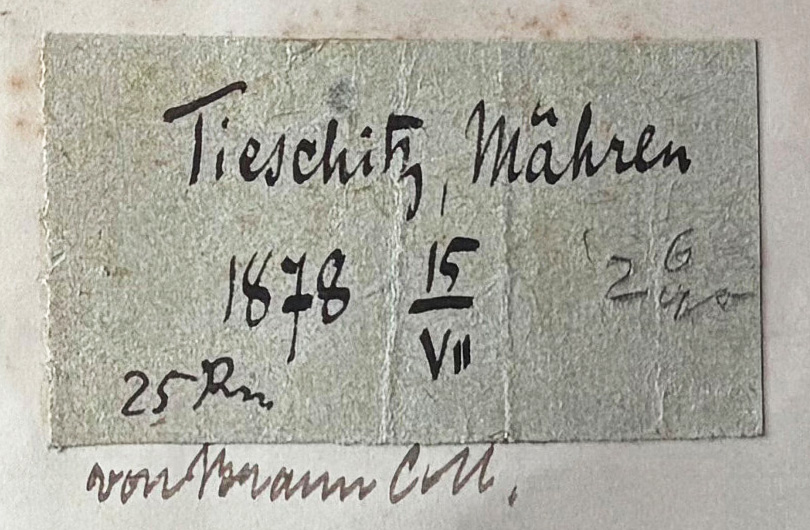 Tieschitz, Mähren
1878 15/VII
2 G
25 Rm
von Braun Coll.